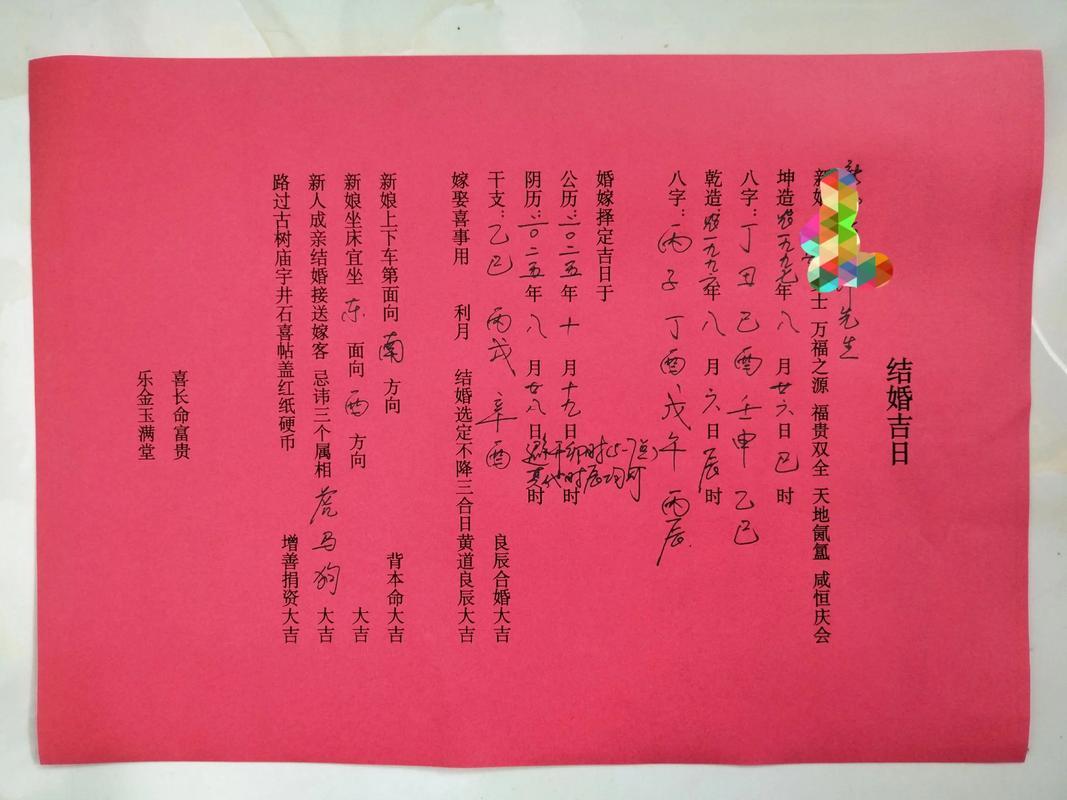 结婚吉日
先生
新 士 万福之源 福贵双全 天地氤氲 咸恒庆会
坤造 一九九七年 八 月 廿六 日 巳 时
八字：丁丑 己酉 壬申 乙巳
乾造 一九九六年 八 月 六 日 辰 时
八字：丙子 丁酉 戊午 丙辰
婚嫁择定吉日于
公历：二〇二五年 十 月 十九 日 时
阴历：二〇二五年 八 月 廿八 日 时
干支：乙巳 丙戌 辛酉 良辰合婚大吉
嫁娶喜事用 利月 结婚选定不降三合日黄道良辰大吉
新娘上下车第面向 南 方向 背本命大吉
新娘坐床宜坐 东 面向 酉 方向 大吉
新人成亲结婚接送嫁客 忌讳三个属相 虎 马 狗 大吉
路过古树庙宇井石喜帖盖红纸硬币 增善捐资大吉
喜长命富贵
乐金玉满堂